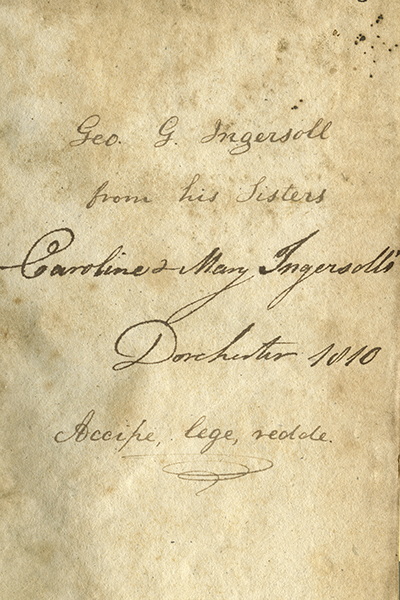 Geo. G. Ingersoll
from his Sisters
Caroline & Mary Ingersoll's
Dorchester 1810
Accipe, lege, redde.